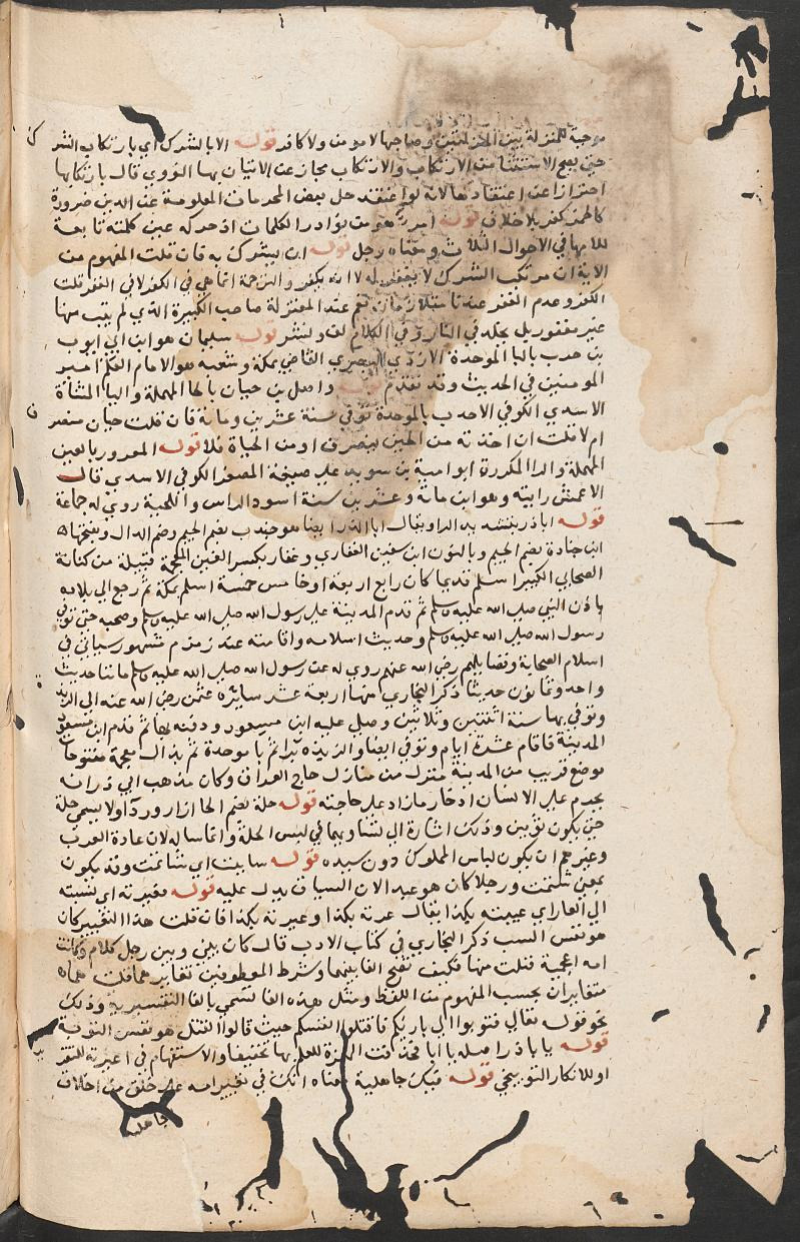 موجبة للمنزلة بين المنزلتين وصاحبها لا مومن ولا كافر قوله الا بالشرك اي بارتكاب الشر
حتى يصح الاستثنا من الارتكاب والارتكاب مجاز عن الاتيان بها النووي قال بارتكابها
احترازا عن اعتقادها لانه لو اعتقد حل بعض المحرمات المعلومة عن الدين ضرورة
كالخمر كفر بلا خلاف قوله امرء هو من نوادر الكلمات اذ حركه عين كلمته تابعة
للامها في الاحوال الثلاث ومعناه رجل قوله ان يشرك به فان قلت المفهوم من
الاية ان مرتكب الشرك لا يغفر له لا انه يكفر والترجمة انما هي في الكفر لا في الغفر قلت
الكفر وعدم الغفر عندنا متلازمان نعم عند المعتزلة صاحب الكبيرة الذي لم يتب منها
غير مغفور بل يخلد في النار وفي الكلام لف ونشر قوله سليمان هو ابن ابي ايوب
بن حرب بالبا الموحدة الازدي البصري القاضي بمكة وشعبه هو الامام العلم امير
المومنين في الحديث وقد تقدم قوله واصل بن حيان بالحا المهملة واليا المثناة
الاسدي الكوفي الاحدب بالموحدة توفي سنة عشرين وماية فان قلت حيان منصر
ام لا قلت ان اخذته من الحين ينصرف او من الحياة فلا قوله المعرور بالعين
المهملة والرا المكررة ابو امية بن سويد على صيغة المصغر الكوفي الاسدي قال
الاعمش رايته وهو ابن ماية وعشرين سنة اسود الراس واللحية روي له جماعة
قوله اباذر بتشديد الرا ويقال ابا الذر ايضا هو جندب بضم الجيم وضم الدال وفتحها
ابن جنادة بضم الجيم وبالنون ابن سفين الغفاري وغفار بكسر الغين المعجمة قبيلة من كنانة
الصحابي الكبير اسلم قديما كان رابع اربعة او خامس خمسة اسلم بمكة ثم رجع الي بلاده
باذن النبي صلى الله عليه وسلم ثم قدم المدينة على رسول الله صلى الله عليه وسلم وصحبه حتى توفي
رسول الله صلى الله عليه وسلم وحديث اسلامه واقامته عند زمزم مشهور سياتي في
اسلام الصحابة وفضايلهم رضي الله عنهم روي له عن رسول الله صلى الله عليه وسلم مائتا حديث
واحد وثمانون حديثا ذكر البخاري منها اربعة عشر سايره عثمن رضي الله عنه الي الربذ
وتوفي بها سنة اثنتين وثلاثين وصلى عليه ابن مسعود ودفنه بها ثم قدم ابن مسعود
المدينة فاقام عشرة ايام وتوفي ايضا والربذه برا ثم با موحدة ثم بذال معجمة مفتوحات
موضع قريب من المدينة منزل من منازل حاج العراق وكان مذهب ابي ذر انه
يحرم على الانسان ادخار ما زاد على حاجته قوله حلة بضم الحا ازار وردا ولا يسمى حلة
حتى يكون ثوبين وذلك اشارة الي تساويهما في لبس الحلة وانما ساله لان عادة العرب
وغيرهم ان يكون لباس المملوك دون سيده قوله ساببت اي شاتمت وقد يكون
بمعنى شتمت ورجلا كان هو عبد الان السياق يدل عليه قوله فعيرته اي نسبته
الي العار اي عيبته بكذا يقال عرته بكذا وعيرته بكذا فان قلت هذا التعيير كان
هو نفس السب ذكر البخاري في كتاب الادب قال كان بيني وبين رجل كلام وكانت
امه اعجمية فنلت منها فكيف تصح الفا بينهما وشرط المعطوفين تغايرهما قلت هماه
متغايران بحسب المفهوم من اللفظ ومثل هذه الفا تسمى بالفا التفسيرية وذلك
نحو قوله تعالي فتوبوا الي باريكم فاقتلوا انفسكم حيث قالوا القتل هو نفس التوبة
قوله يا باذر اصله يا ابا فحذفت الهمزة للعلم بها تخفيفا والاستفهام في اعيرته للتقر
او للانكار التوبيخي قوله فيك جاهلية معناه انك في تعيير امه على خلق من اخلاق
جاهلية